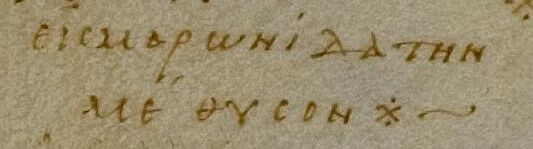 εισμαρωνίδα την
μέθυσον ※ ~